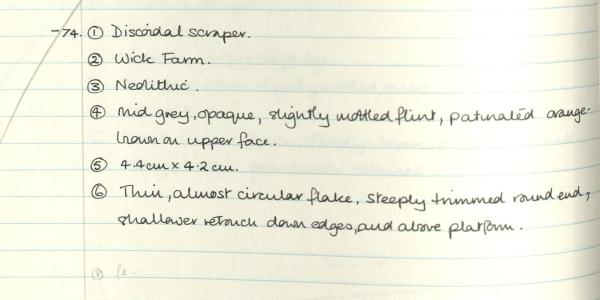 -74. ① Discoidal scraper.
② Wick Farm.
③ Neolithic.
④ Mid grey, opaque, slightly mottled flint, patinated orange-
brown on upper face.
⑤ 4.4cm × 4.2cm.
⑥ Thin, almost circular flake, steeply trimmed round end,
shallower retouch down edges, and above platform.
⑧ £2.